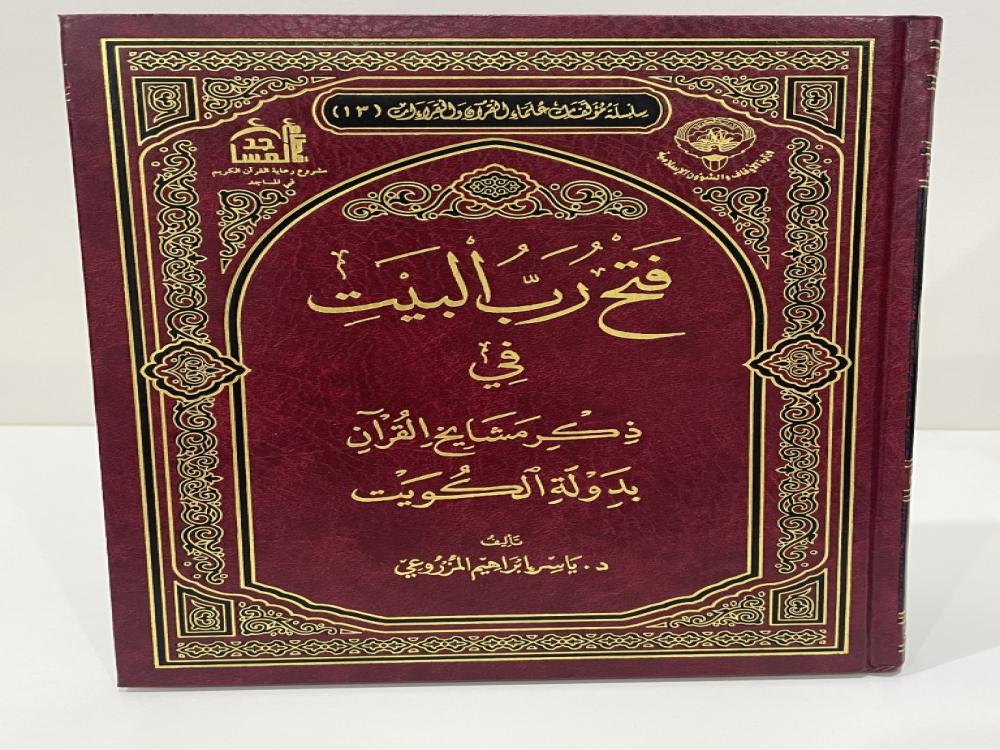 سلسلة مؤلفات علماء القرآن والقراءات (١٣)
وزارة الأوقاف والشؤون الإسلامية
المساجد
مشروع رعاية القرآن الكريم
في المساجد
فَتْحُ رَبُّ الْبَيْتِ
فِي
ذِكْرِ مَشَايِخِ الْقُرْآنِ
بِدَوْلَةِ الْكُوَيْت
تأليف
د. ياسر إبراهيم المزروعي